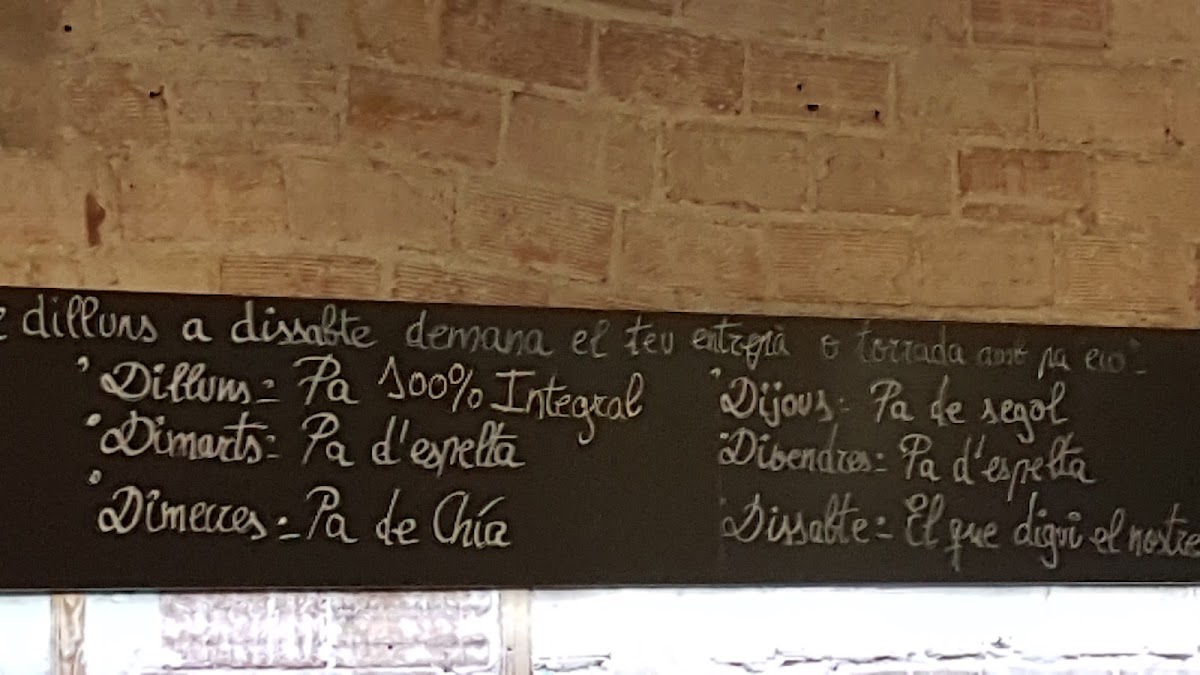 dilluns a dissabte demana el teu entrepà o torrada amb pa eco:
Dilluns: Pa 100% Integral
Dimarts: Pa d'espelta
Dimecres: Pa de Chía
Dijous: Pa de segol
Divendres: Pa d'espelta
Dissabte: El que digui el nostre